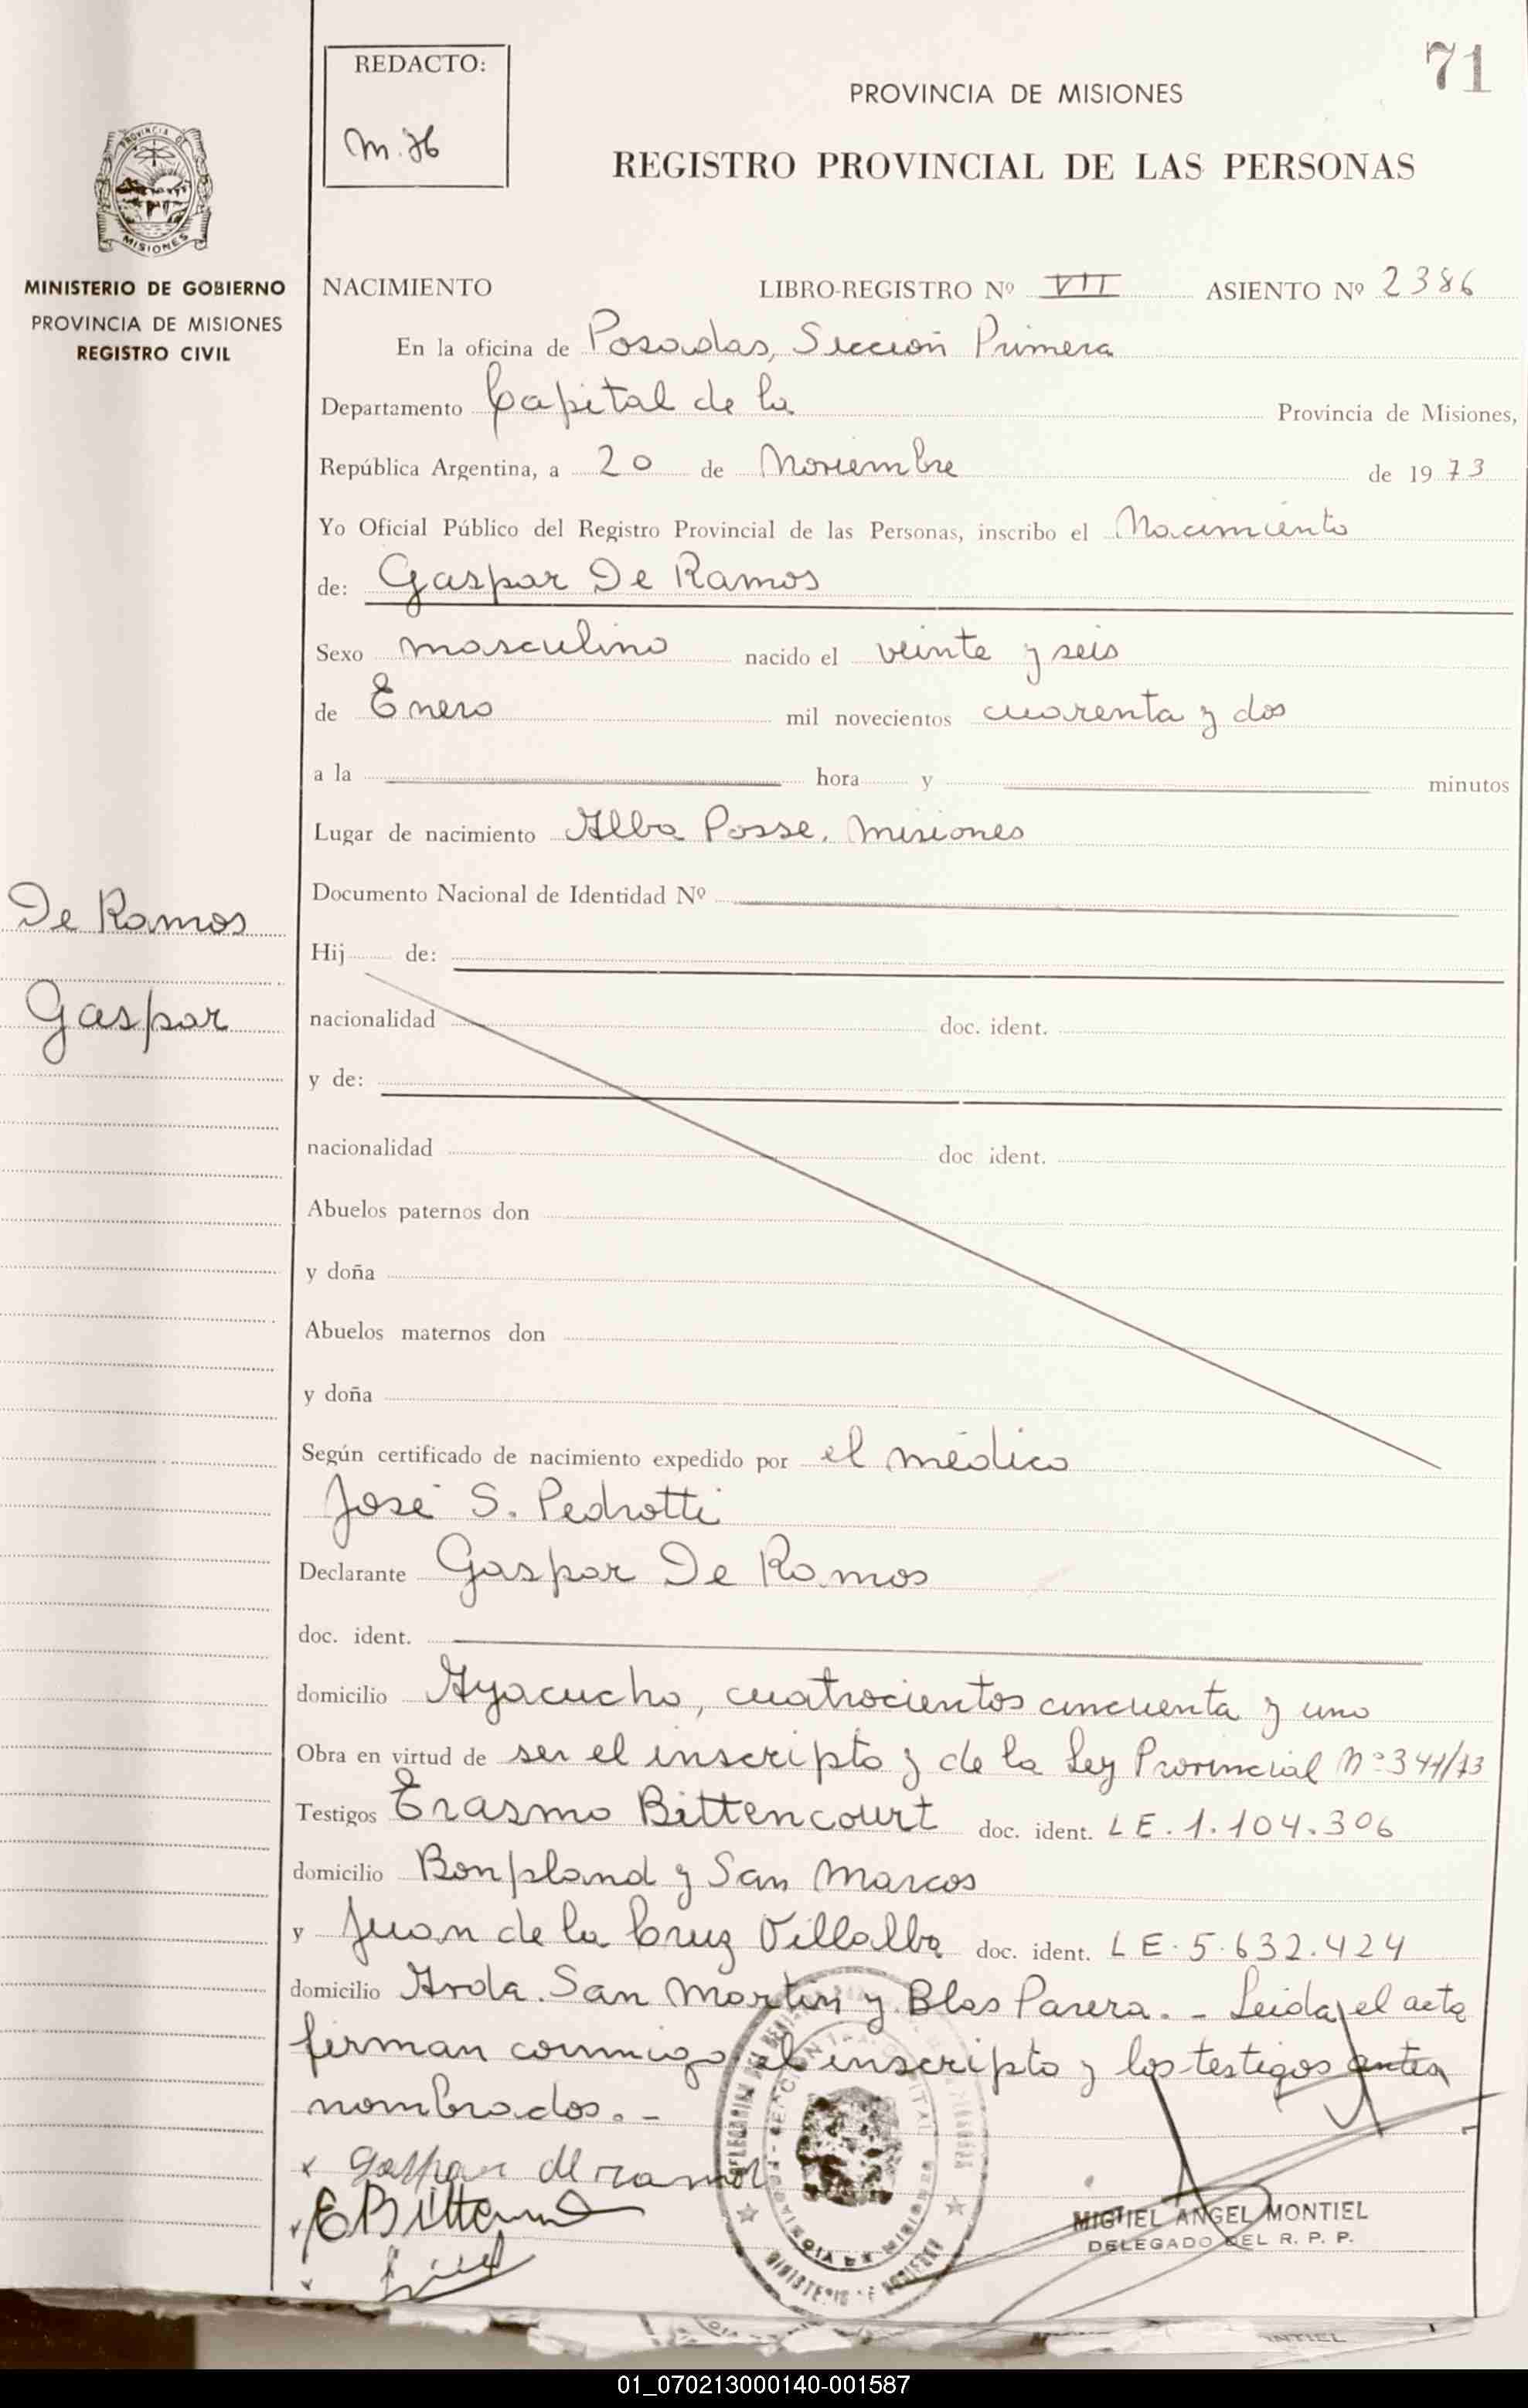 71
REDACTO:
M. H
PROVINCIA DE MISIONES
REGISTRO PROVINCIAL DE LAS PERSONAS
PROVINCIA DE
MISIONES
MINISTERIO DE GOBIERNO
PROVINCIA DE MISIONES
REGISTRO CIVIL
NACIMIENTO LIBRO-REGISTRO Nº VII ASIENTO Nº 2386
En la oficina de Posadas, Sección Primera
Departamento Capital de la Provincia de Misiones,
República Argentina, a 20 de Noviembre de 1973
Yo Oficial Público del Registro Provincial de las Personas, inscribo el Nacimiento
de: Gaspar De Ramos
Sexo masculino nacido el veinte y seis
de Enero mil novecientos cuarenta y dos
a la hora y minutos
Lugar de nacimiento Alba Posse, Misiones
Documento Nacional de Identidad Nº
De Ramos
Gaspar
Hij de:
nacionalidad doc. ident.
y de:
nacionalidad doc ident.
Abuelos paternos don
y doña
Abuelos maternos don
y doña
Según certificado de nacimiento expedido por el médico
José S. Pedrotti
Declarante Gaspar De Ramos
doc. ident.
domicilio Ayacucho, cuatrocientos cincuenta y uno
Obra en virtud de ser el inscripto y de la Ley Provincial Nº 341/73
Testigos Erasmo Bittencourt doc. ident. LE. 1.104.306
domicilio Bonpland y San Marcos
y Juan de la Cruz Villalba doc. ident. LE. 5.632.424
domicilio Avda. San Martín y Blas Parera. - Leida el acta
firman conmigo el inscripto y los testigos antes
nombrados. -
x Gaspar de ramos
MIGUEL ANGEL MONTIEL
DELEGADO DEL R. P. P.
01_070213000140-001587